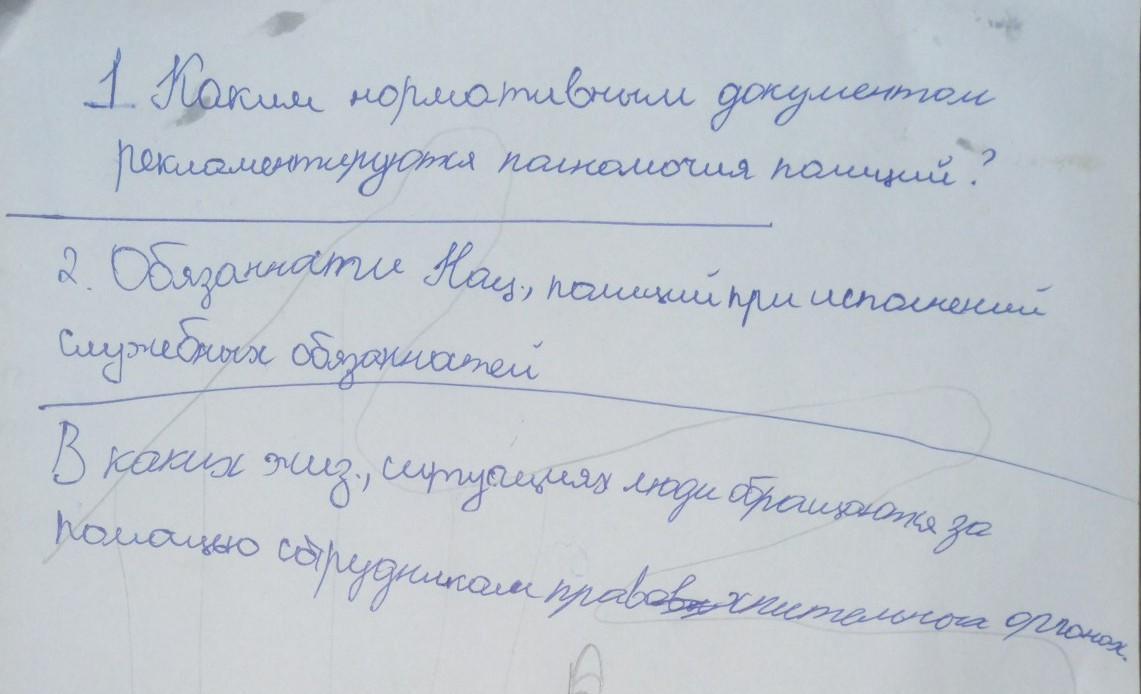 1. Каким нормативным документом
рекламентируются полномочия полиций?
2. Обязанности Нац., полиций при исполнений
служебных обязанностей
В каких жиз., ситуациях люди обращаются за
помощью сотрудникам правохнительнога органах.